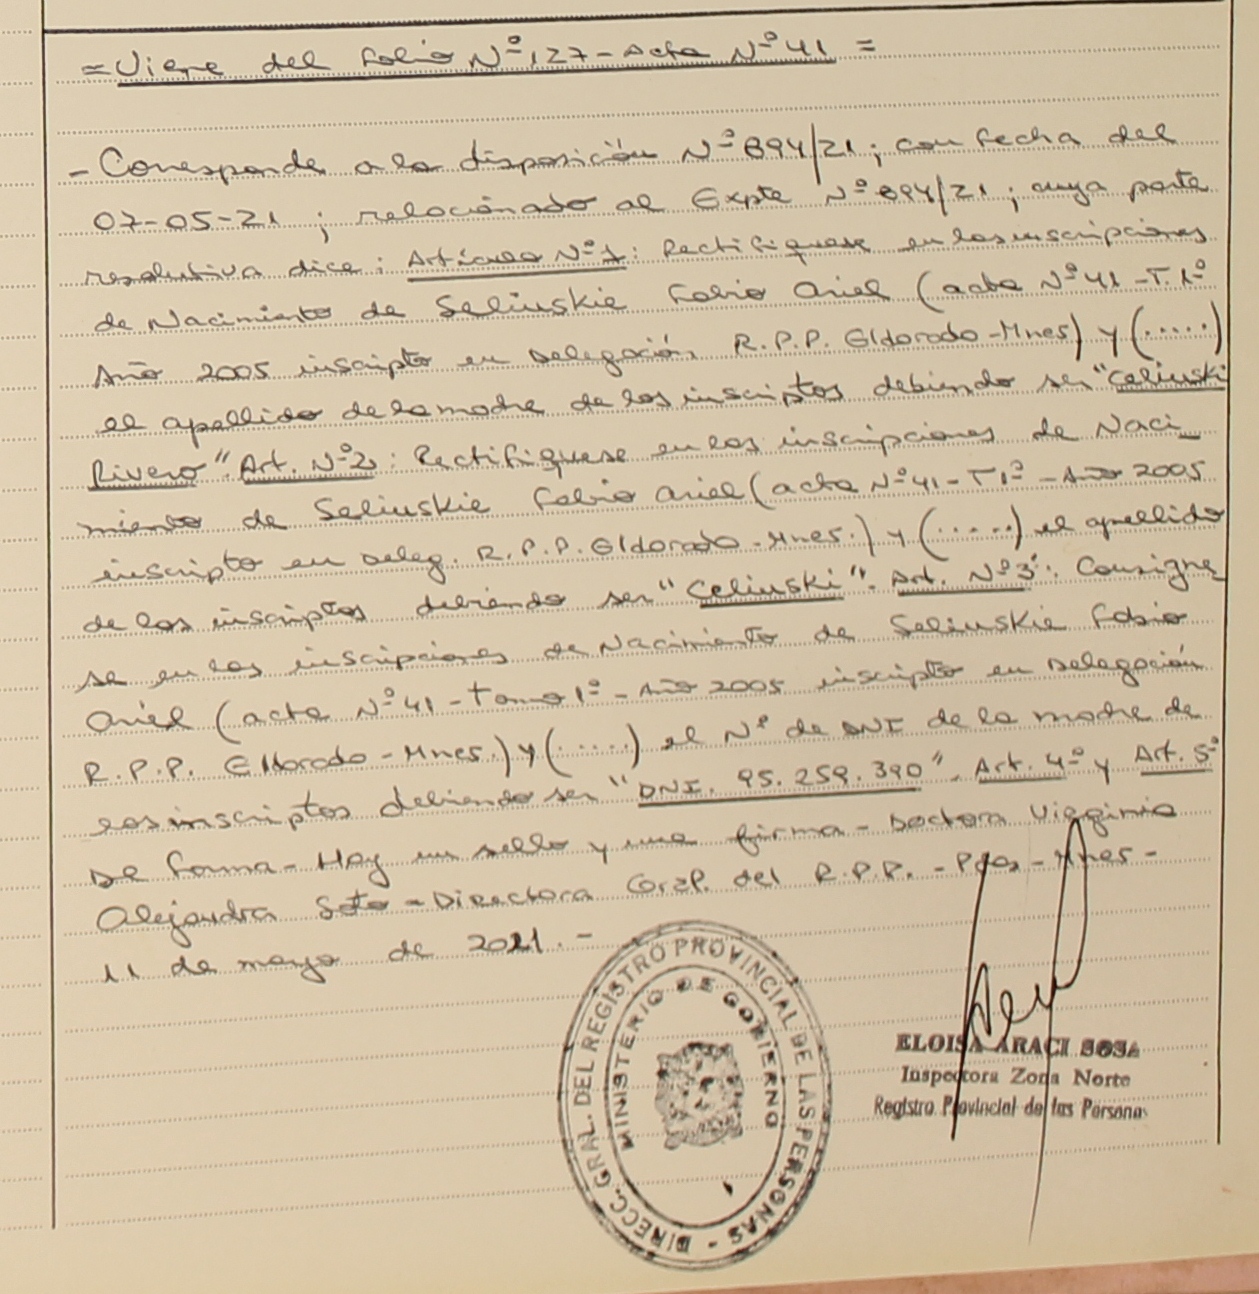 = Viene del Folio Nº 127 - Acta Nº 41 =
- Corresponde a la disposición Nº 894/21; con fecha del
07-05-21; relacionado al Expte Nº 894/21; cuya parte
resolutiva dice: Artículo Nº 1: Rectifiquese en las inscripciones
de Nacimiento de Seliuskie Fabio Ariel (acta Nº 41 - T. 1º
Año 2005 inscripto en Delegación R.P.P. Eldorado - Mnes) y (.....)
el apellido de la madre de los inscriptos debiendo ser "Celiuski
Rivero" Art. Nº 2: Rectifiquese en las inscripciones de Naci_
miento de Seliuskie Fabio Ariel (acta Nº 41 - T 1º - Año 2005
inscripto en Deleg. R.P.P. Eldorado - Mnes.) y (.....) el apellido
de los inscriptos debiendo ser "Celiuski". Art. Nº 3: Consigne_
se en las inscripciones de Nacimiento de Seliuskie Fabio
Ariel (acta Nº 41 - Tomo 1º - Año 2005 inscripto en Delegación
R.P.P. Eldorado - Mnes.) y (.....) el Nº de DNI de la madre de
los inscriptos debiendo ser "DNI. 95.259.390". Art. 4º y Art. 5º
De forma - Hay un sello y una firma - Doctora Virginia
Alejandra Soto - Directora Gral. del R.P.P. - Pdas - Mnes -
11 de mayo de 2021. -
DIRECC. GRAL. DEL REGISTRO PROVINCIAL DE LAS PERSONAS -
MINISTERIO DE GOBIERNO
ELOISA ARACI SOSA
Inspectora Zona Norte
Registro Provincial de las Personas